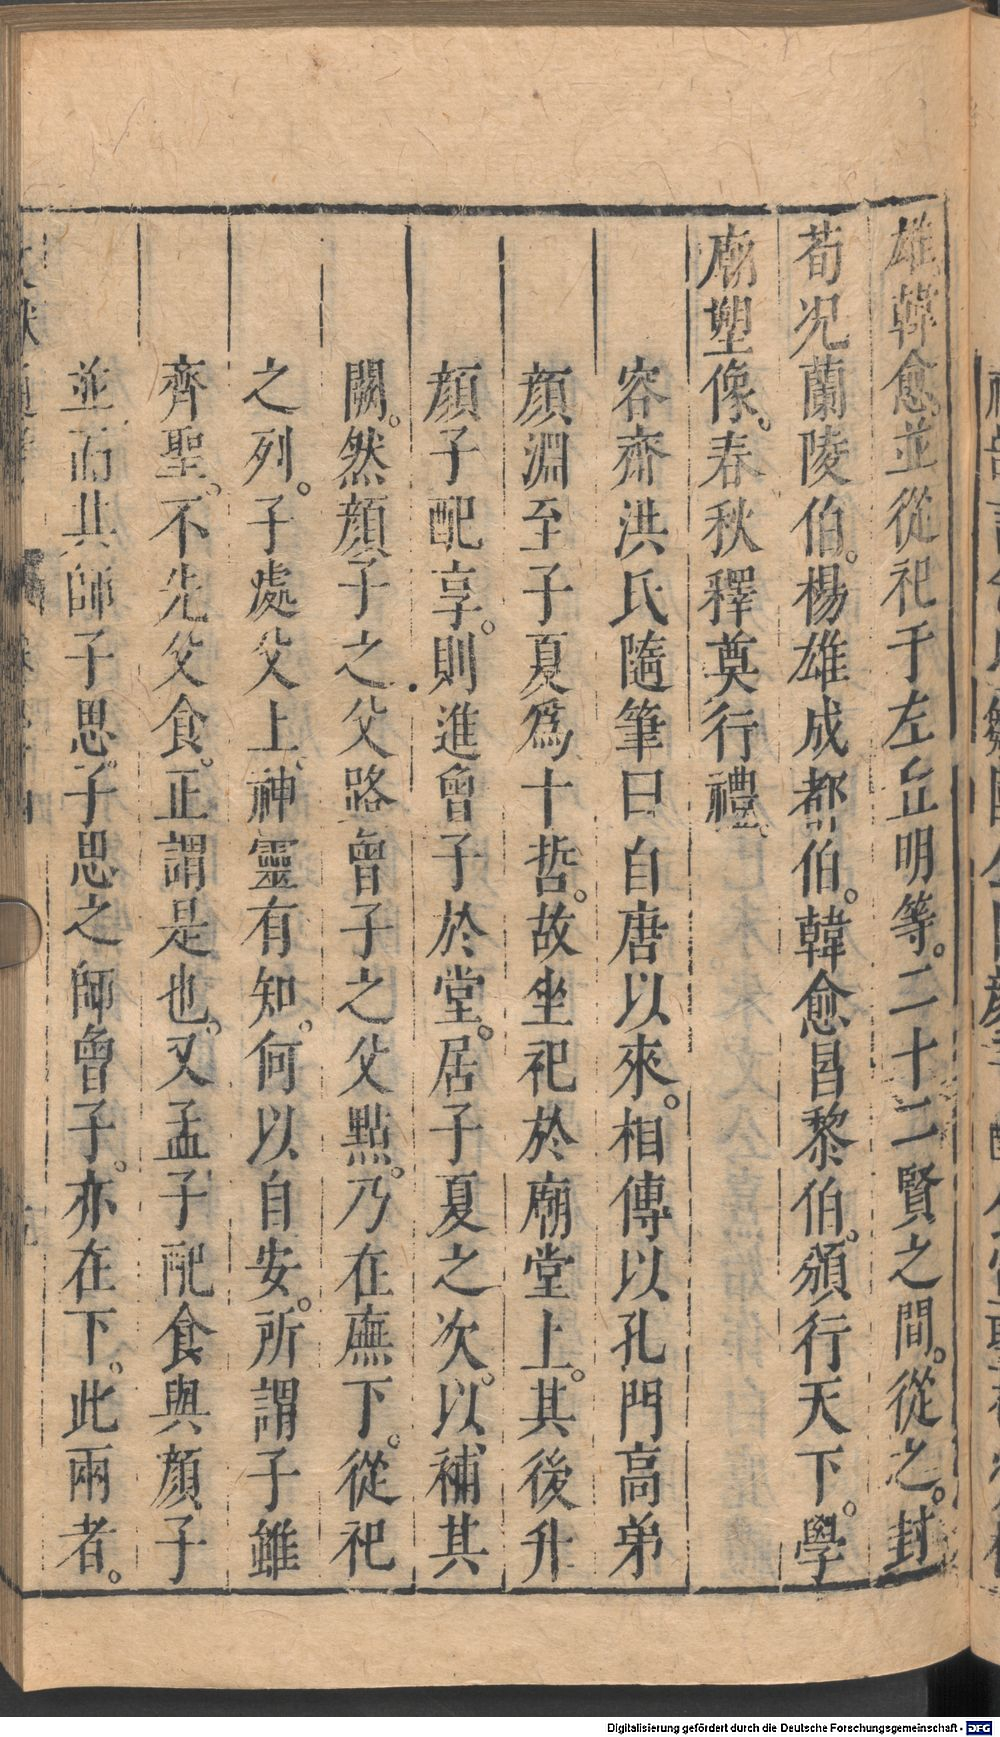 雄韓愈並從祀于左丘明等。二十二賢之間。從之。封
荀况蘭陵伯。楊雄成都伯。韓愈昌黎伯。頒行天下。學
廟塑像。春秋釋奠行禮。
容齋洪氏隨筆曰自唐以來。相傳以孔門高弟
顏淵至子夏爲十哲。故坐祀於廟堂上。其後升
顏子配享。則進曾子於堂。居子夏之次。以補其
闕。然顏子之父路曾子之父點。乃在廡下。從祀
之列。子處父上。神靈有知。何以自安。所謂子雖
齊聖。不先父食。正謂是也。又孟子配食與顏子
並而其師子思。子思之師曾子。亦在下。此兩者。
Digitalisierung gefördert durch die Deutsche Forschungsgemeinschaft - DFG